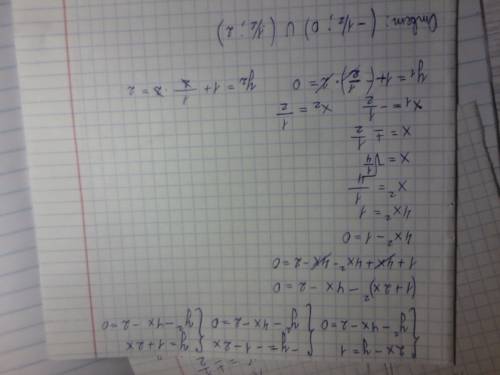 { 2x - y = 1 { -y = -1 - 2x { y = 1 + 2x
{ y² - 4x - 2 = 0 { y² - 4x - 2 = 0 { y² - 4x - 2 = 0
(1 + 2x)² - 4x - 2 = 0
1 + 4x + 4x² - 4x - 2 = 0
4x² - 1 = 0
4x² = 1
x² = 1/4
x = √1/4
x = ± 1/2
x₁ = - 1/2 x₂ = 1/2
y₁ = 1 + (- 1/2) · 2 = 0 y₂ = 1 + 1/2 · 2 = 2
Ответ: (- 1/2 ; 0) ∪ (1/2 ; 2)